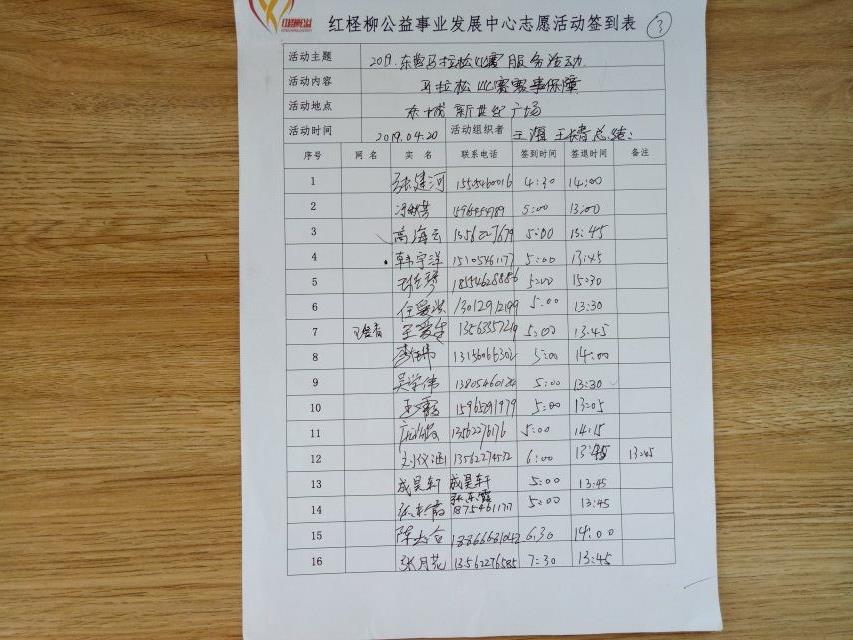 红柽柳公益事业发展中心志愿活动签到表 ③
活动主题 2019.东营马拉松比赛服务活动
活动内容 马拉松比赛赛事保障
活动地点 东城新世纪广场
活动时间 2019.04.20 活动组织者
序号 网名 实名 联系电话 签到时间 签退时间 备注
1 张建河 15554660016 4:30 14:00
2 5:00 13:00
3 高海云 1356227679 5:00 13:45
4 韩宇洋 15105461177 5:00 13:45
5 18554628886 5:00 15:30
6 任爱洪 13012912199 5:00 13:30
7 王爱生 5:00 13:45
8 13156066302 5:00 14:00
9 吴学伟 5:00 13:30
10 王霞 15965291979 5:00 13:05
11 13562276176 5:00 14:15
12 刘仪涵 13562274572 6:00 13:45 13:45
13 成昊轩 成昊轩 5:00 13:45
14 张东霞 张东霞 1875461177 5:00 13:45
15 18866681042 6:30 14:00
16 张月花 13562276585 7:30 13:45